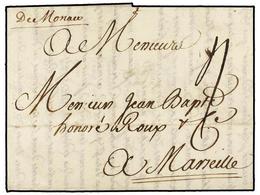 De Monaco
A Messieurs
Messieurs Jean Bapte
honoré Roux &
A Marseille